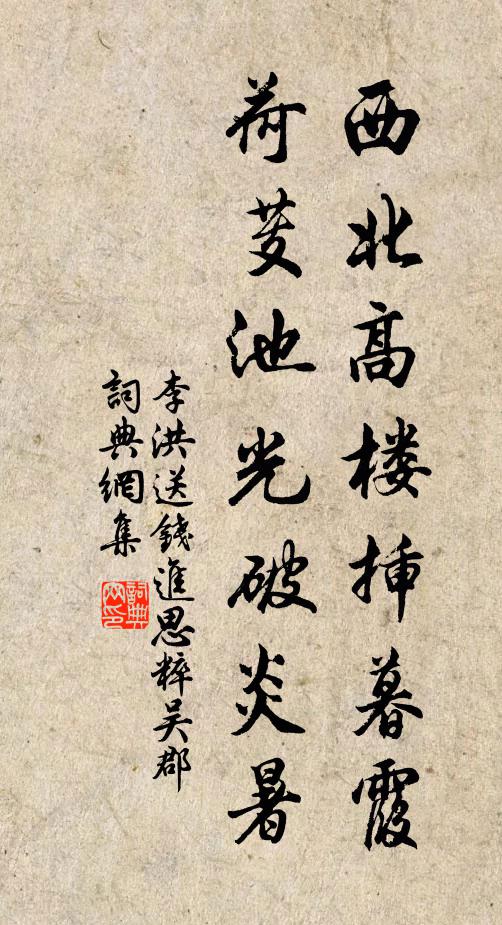 西北高楼挿暮霞
荷芰池光破炎暑
李洪送錢進思粹吴郡
詞典網集
詞典
网印